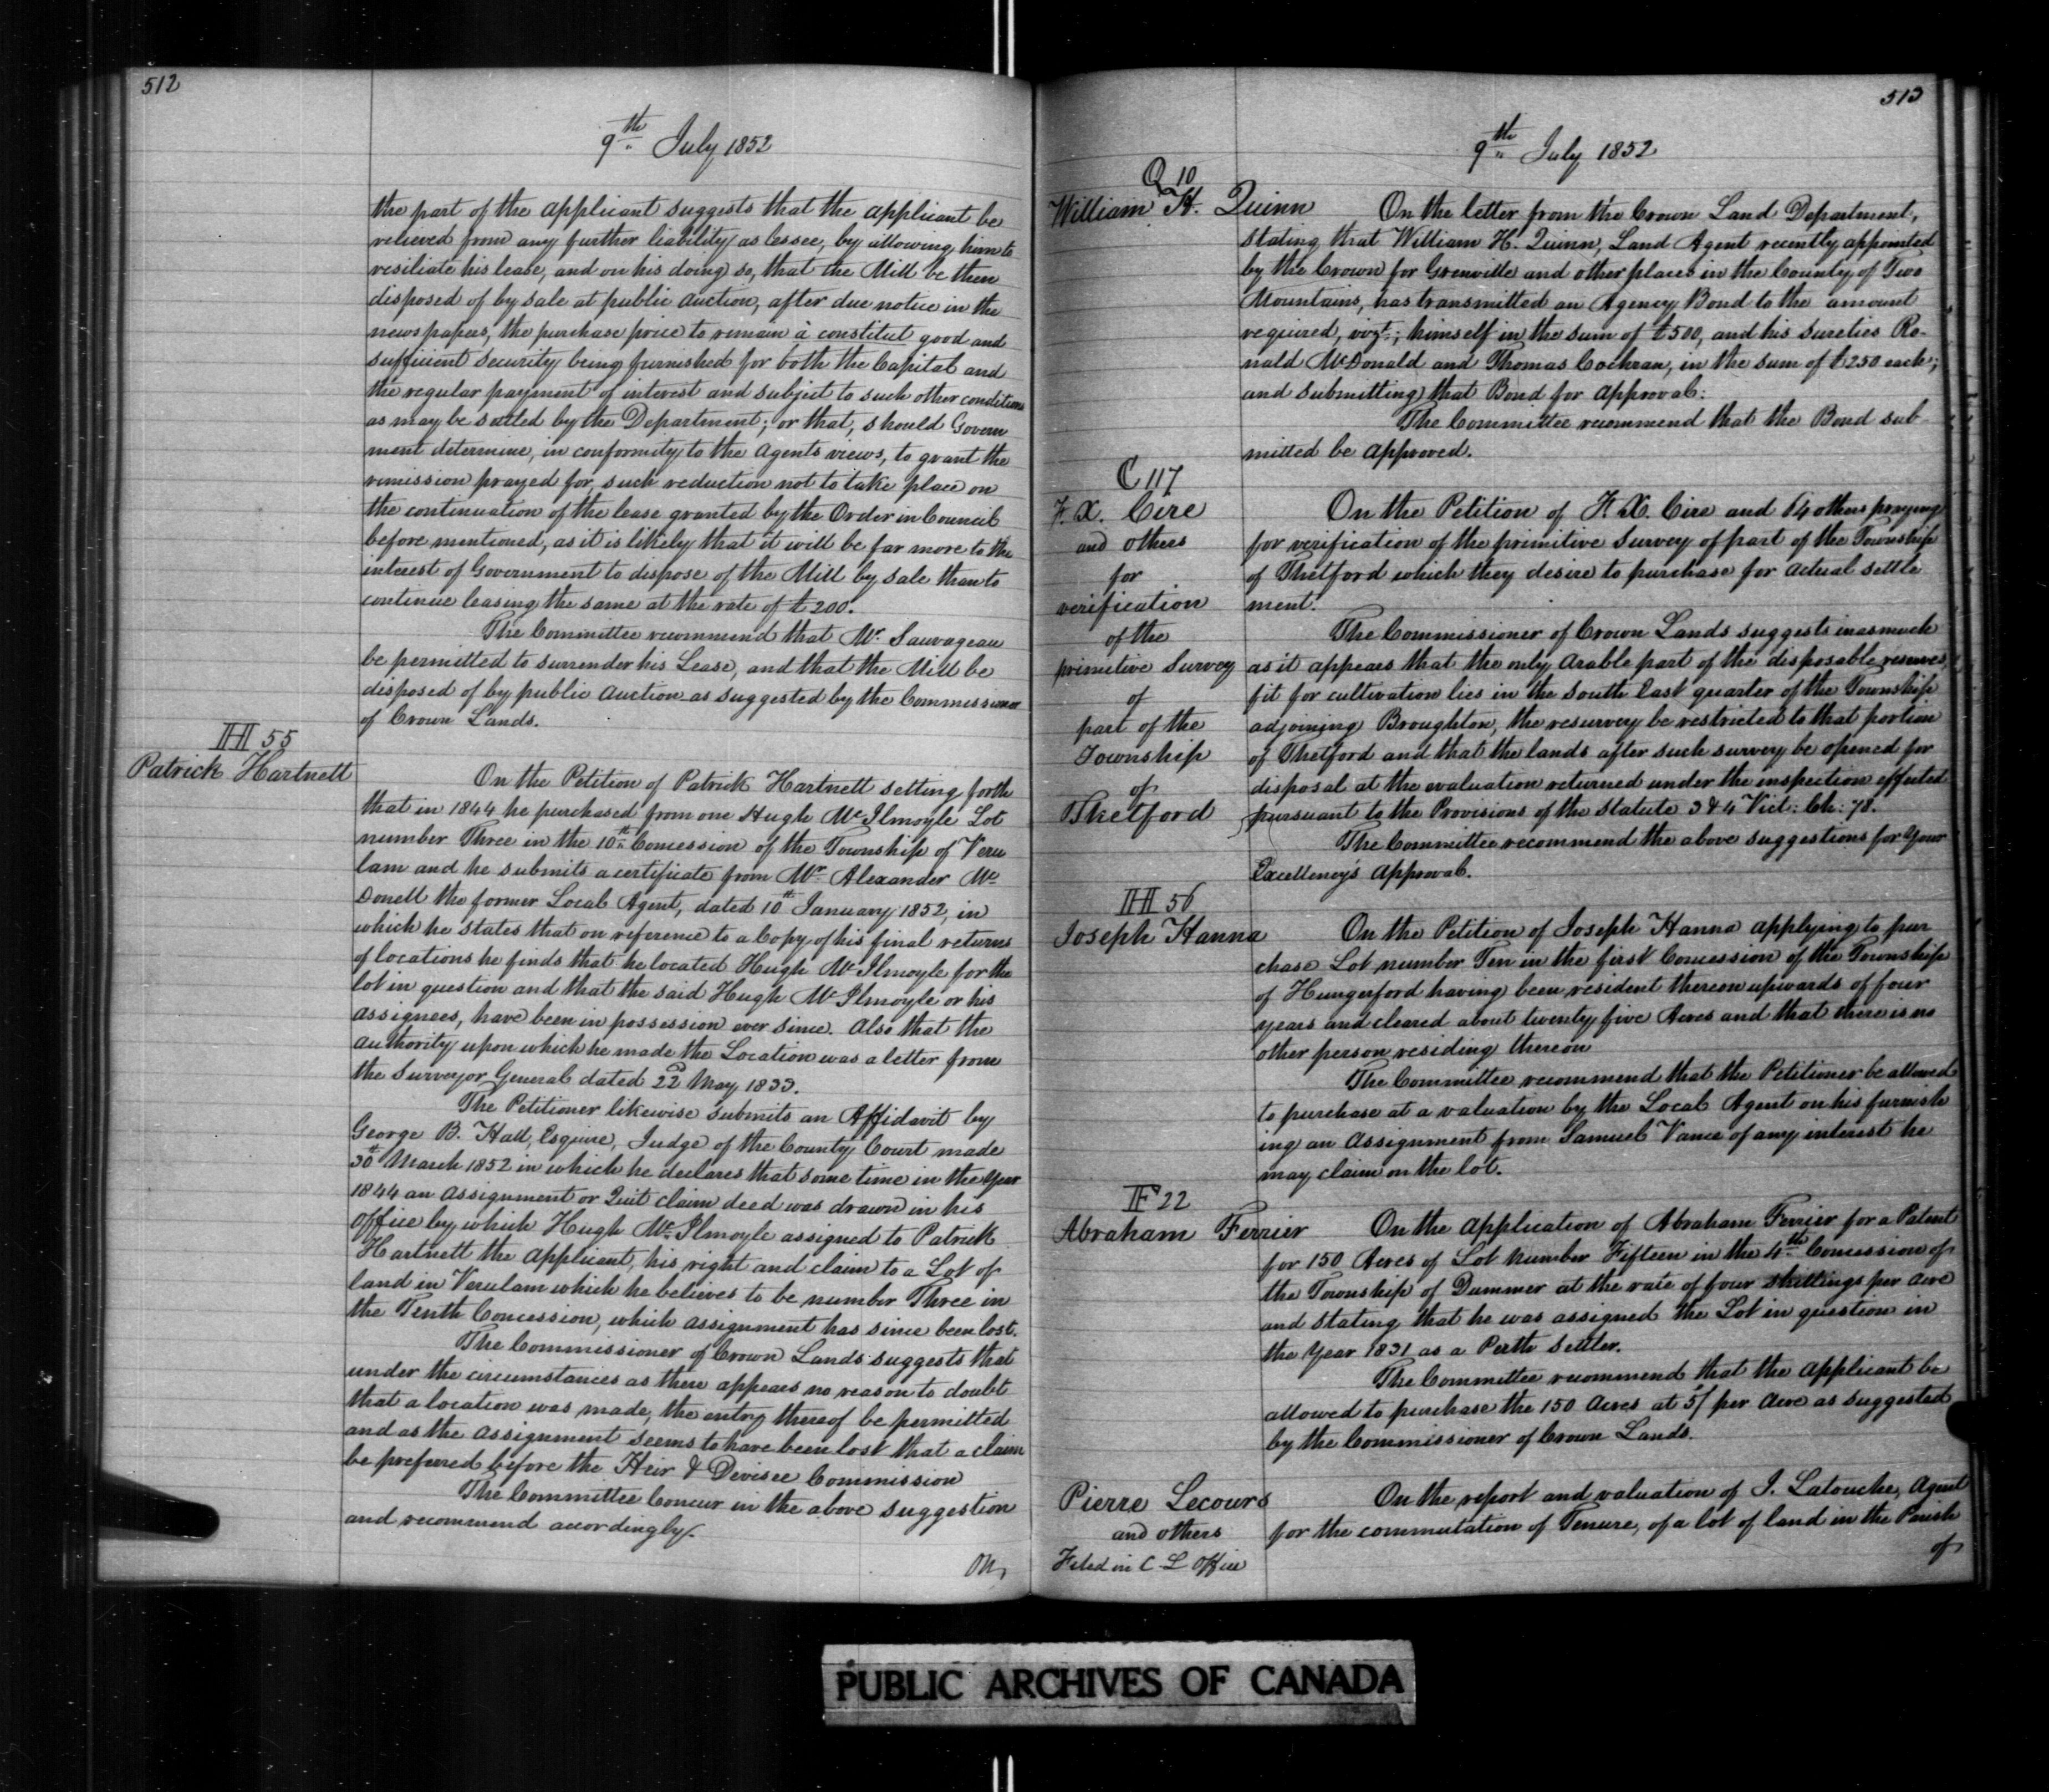 512
9th July 1852
the part of the applicant suggests that the applicant be
relieved from any further liability as lessee, by allowing him to
resiliate his lease, and on his doing so, that the Mill be then
disposed of by sale at public auction, after due notice in the
news papers, the purchase price to remain à constitut good and
sufficient security being furnished for both the Capital and
the regular payment of interest and subject to such other conditions
as may be settled by the Department; or that, should Govern
ment determine, in conformity to the Agents views, to grant the
remission prayed for, such reduction not to take place on
the continuation of the lease granted by the Order in Council
before mentioned, as it is likely that it will be far more to the
interest of Government to dispose of the Mill by sale than to
continue leasing the same at the rate of £200.
The Committee recommend that Mr. Sauvageau
be permitted to surrender his Lease, and that the Mill be
disposed of by public auction as suggested by the Commissioner
of Crown Lands.
H 55
Patrick Hartnett
On the Petition of Patrick Hartnett setting forth
that in 1844 he purchased from one Hugh McIlmoyle Lot
number Three in the 10th Concession of the Township of Veru
lam and he submits a certificate from Mr. Alexander Mc
Donell the former Local Agent, dated 10th January 1852, in
which he states that on reference to a Copy of his final returns
of locations he finds that he located Hugh McIlmoyle for the
lot in question and that the said Hugh McIlmoyle or his
assignees, have been in possession ever since. Also that the
authority upon which he made the Location was a letter from
the Surveyor General dated 22d May 1833.
The Petitioner likewise submits an Affidavit by
George B. Hall, Esquire, Judge of the County Court made
30th March 1852 in which he declares that some time in the Year
1844 an assignment or Quit claim deed was drawn in his
office by which Hugh McIlmoyle assigned to Patrick
Hartnett the applicant, his right and claim to a Lot of
land in Verulam which he believes to be number Three in
the Tenth Concession, which assignment has since been lost.
The Commissioner of Crown Lands suggests that
under the circumstances as there appears no reason to doubt
that a location was made, the entry thereof be permitted
and as the assignment seems to have been lost that a claim
be preferred before the Heir & Devisee Commission
The Committee Concur in the above suggestion
and recommend accordingly.
On
513
9th July 1852
Q 10
William H. Quinn
On the letter from the Crown Land Department,
stating that William H. Quinn, Land Agent recently appointed
by the Crown for Grenville and other places in the County of Two
Mountains, has transmitted an Agency Bond to the amount
required, vizt: himself in the sum of £500, and his sureties Ro-
nald McDonald and Thomas Cochran, in the sum of £250 each;
and submitting that Bond for approval:
The Committee recommend that the Bond sub-
mitted be approved.
C 117
F. X. Cire
and others
for
verification
of the
primitive Survey
of
part of the
Township
of
Thetford
On the Petition of F. X. Cire and 64 others praying
for verification of the primitive Survey of part of the Township
of Thetford which they desire to purchase for actual settle
ment.
The Commissioner of Crown Lands suggests inasmuch
as it appears that the only arable part of the disposable reserves
fit for cultivation lies in the South East quarter of the Township
adjoining Broughton, the resurvey be restricted to that portion
of Thetford and that the lands after such survey be opened for
disposal at the evaluation returned under the inspection effected
pursuant to the Provisions of the Statute 3 & 4 Vict: Ch: 78.
The Committee recommend the above suggestions for Your
Excellency's approval.
H 56
Joseph Hanna
On the Petition of Joseph Hanna applying to pur
chase Lot number Ten in the first Concession of the Township
of Hungerford having been resident thereon upwards of four
years and cleared about twenty five Acres and that there is no
other person residing thereon
The Committee recommend that the Petitioner be allowed
to purchase at a valuation by the Local Agent on his furnish
ing an assignment from Samuel Vance of any interest he
may claim on the lot.
F 22
Abraham Ferrier
On the application of Abraham Ferrier for a Patent
for 150 Acres of Lot number Fifteen in the 4th Concession of
the Township of Dummer at the rate of four shillings per acre
and stating that he was assigned the Lot in question in
the Year 1831 as a Perth Settler.
The Committee recommend that the applicant be
allowed to purchase the 150 Acres at 5/ per Acre as suggested
by the Commissioner of Crown Lands.
Pierre Lecours
and others
Filed in C L Office
On the report and valuation of J. Latouche, Agent
for the commutation of Tenure, of a lot of land in the Parish
of
PUBLIC ARCHIVES OF CANADA